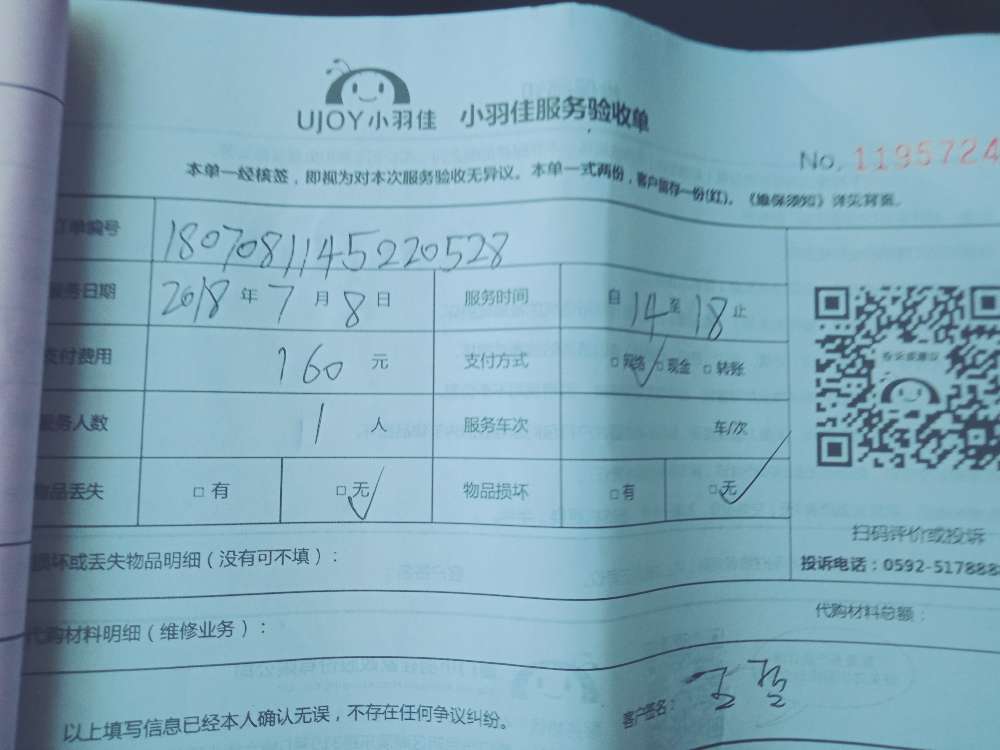 UJOY小羽佳 小羽佳服务验收单
No. 1195724
本单一经核签，即视为对本次服务验收无异议。本单一式两份，客户留存一份(红)。《维保须知》详见背面。
订单编号 180708114522052​8
服务日期 2018 年 7 月 8 日 服务时间 自 14 至 18 止
支付费用 160 元 支付方式 □ 网络 □ 现金 □ 转账
服务人数 1 人 服务车次 车/次
物品丢失 □ 有 □ 无 物品损坏 □ 有 □ 无
扫码评价或投诉
投诉电话：0592-5178888
损坏或丢失物品明细（没有可不填）：
代购材料总额：
代购材料明细（维修业务）：
客户签名：
以上填写信息已经本人确认无误，不存在任何争议纠纷。